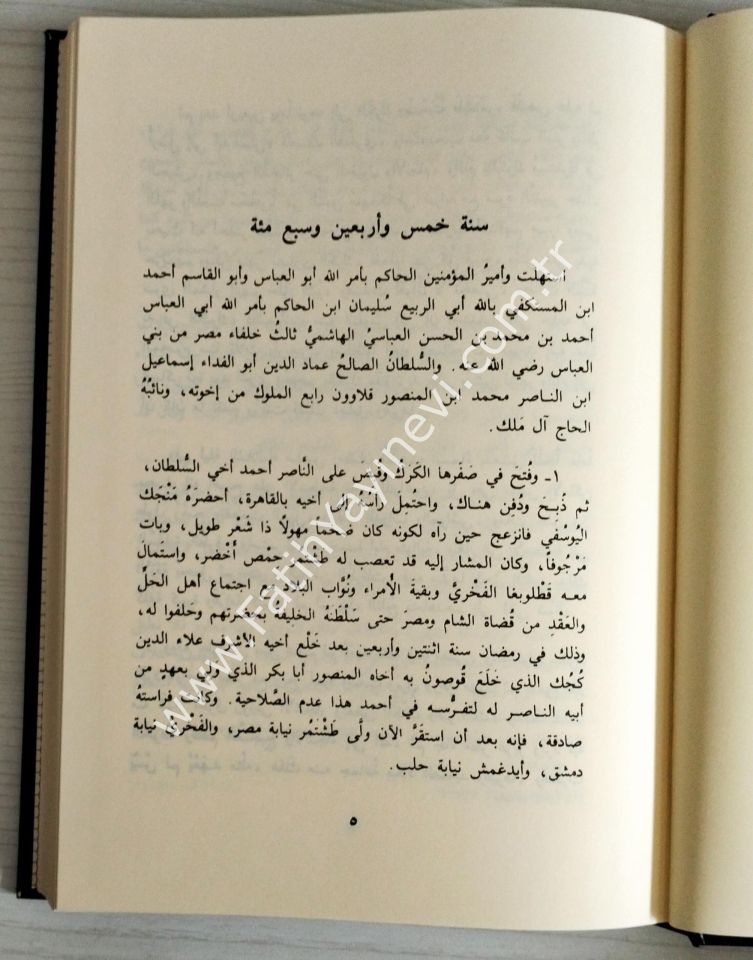 سنة خمس وأربعين وسبع مئة
استهلت وأميرُ المؤمنين الحاكم بأمر الله أبو العباس وأبو القاسم أحمد
ابن المستكفي بالله أبي الربيع سُليمان ابن الحاكم بأمر الله أبي العباس
أحمد بن محمد بن الحسن العباسيُ الهاشميُّ ثالثُ خلفاء مصر من بني
العباس رضي الله عنه. والسُّلطانُ الصالحُ عماد الدين أبو الفداء إسماعيل
ابن الناصر محمد ابن المنصور قلاوون رابع الملوك من إخوته، ونائبُهُ
الحاج آل مَلك.
١ـ وفُتحَ في صَفَرها الكَرَكُ وقُبِضَ على النَّاصر أحمد أخي السُّلطان،
ثم ذُبِحَ ودُفن هناك، واحتُملَ رأسُهُ إلى أخيه بالقاهرة، أحضرَهُ مَنْجَك
اليُوسُفي فانزعج حين رآه لكونه كان ضخماً مهولاً ذا شَعْر طويل، وبات
مَرْجُوفاً، وكان المشار إليه قد تعصب له طَشْتمر حمّص أخْضر، واستَمالَ
معه قَطْلوبغا الفَخْريَّ وبقيةَ الأُمراء ونُوَّاب البلاد مع اجتماع أهل الحَلِّ
والعَقْدِ من قُضاة الشام ومصرَ حتى سَلْطَنَهُ الخليفةُ بحضرتهم وحَلفوا له،
وذلك في رمضان سنة اثنتين وأربعين بعد خَلْع أخيه الأشرف علاء الدين
كُجُك الذي خَلَعَ قُوصونُ به أخاه المنصور أبا بكر الذي ولي بعهدٍ من
أبيه الناصر له لتفرُّسه في أحمد هذا عدم الصَّلاحية. وكانت فراستهُ
صادقة، فإنه بعد أن استقرَّ الآن ولَّى طَشْتَمُر نيابة مصر، والفَخريَّ نيابة
دمشق، وأيدغمش نيابة حلب.
٥
www.FatihYayinevi.com.tr